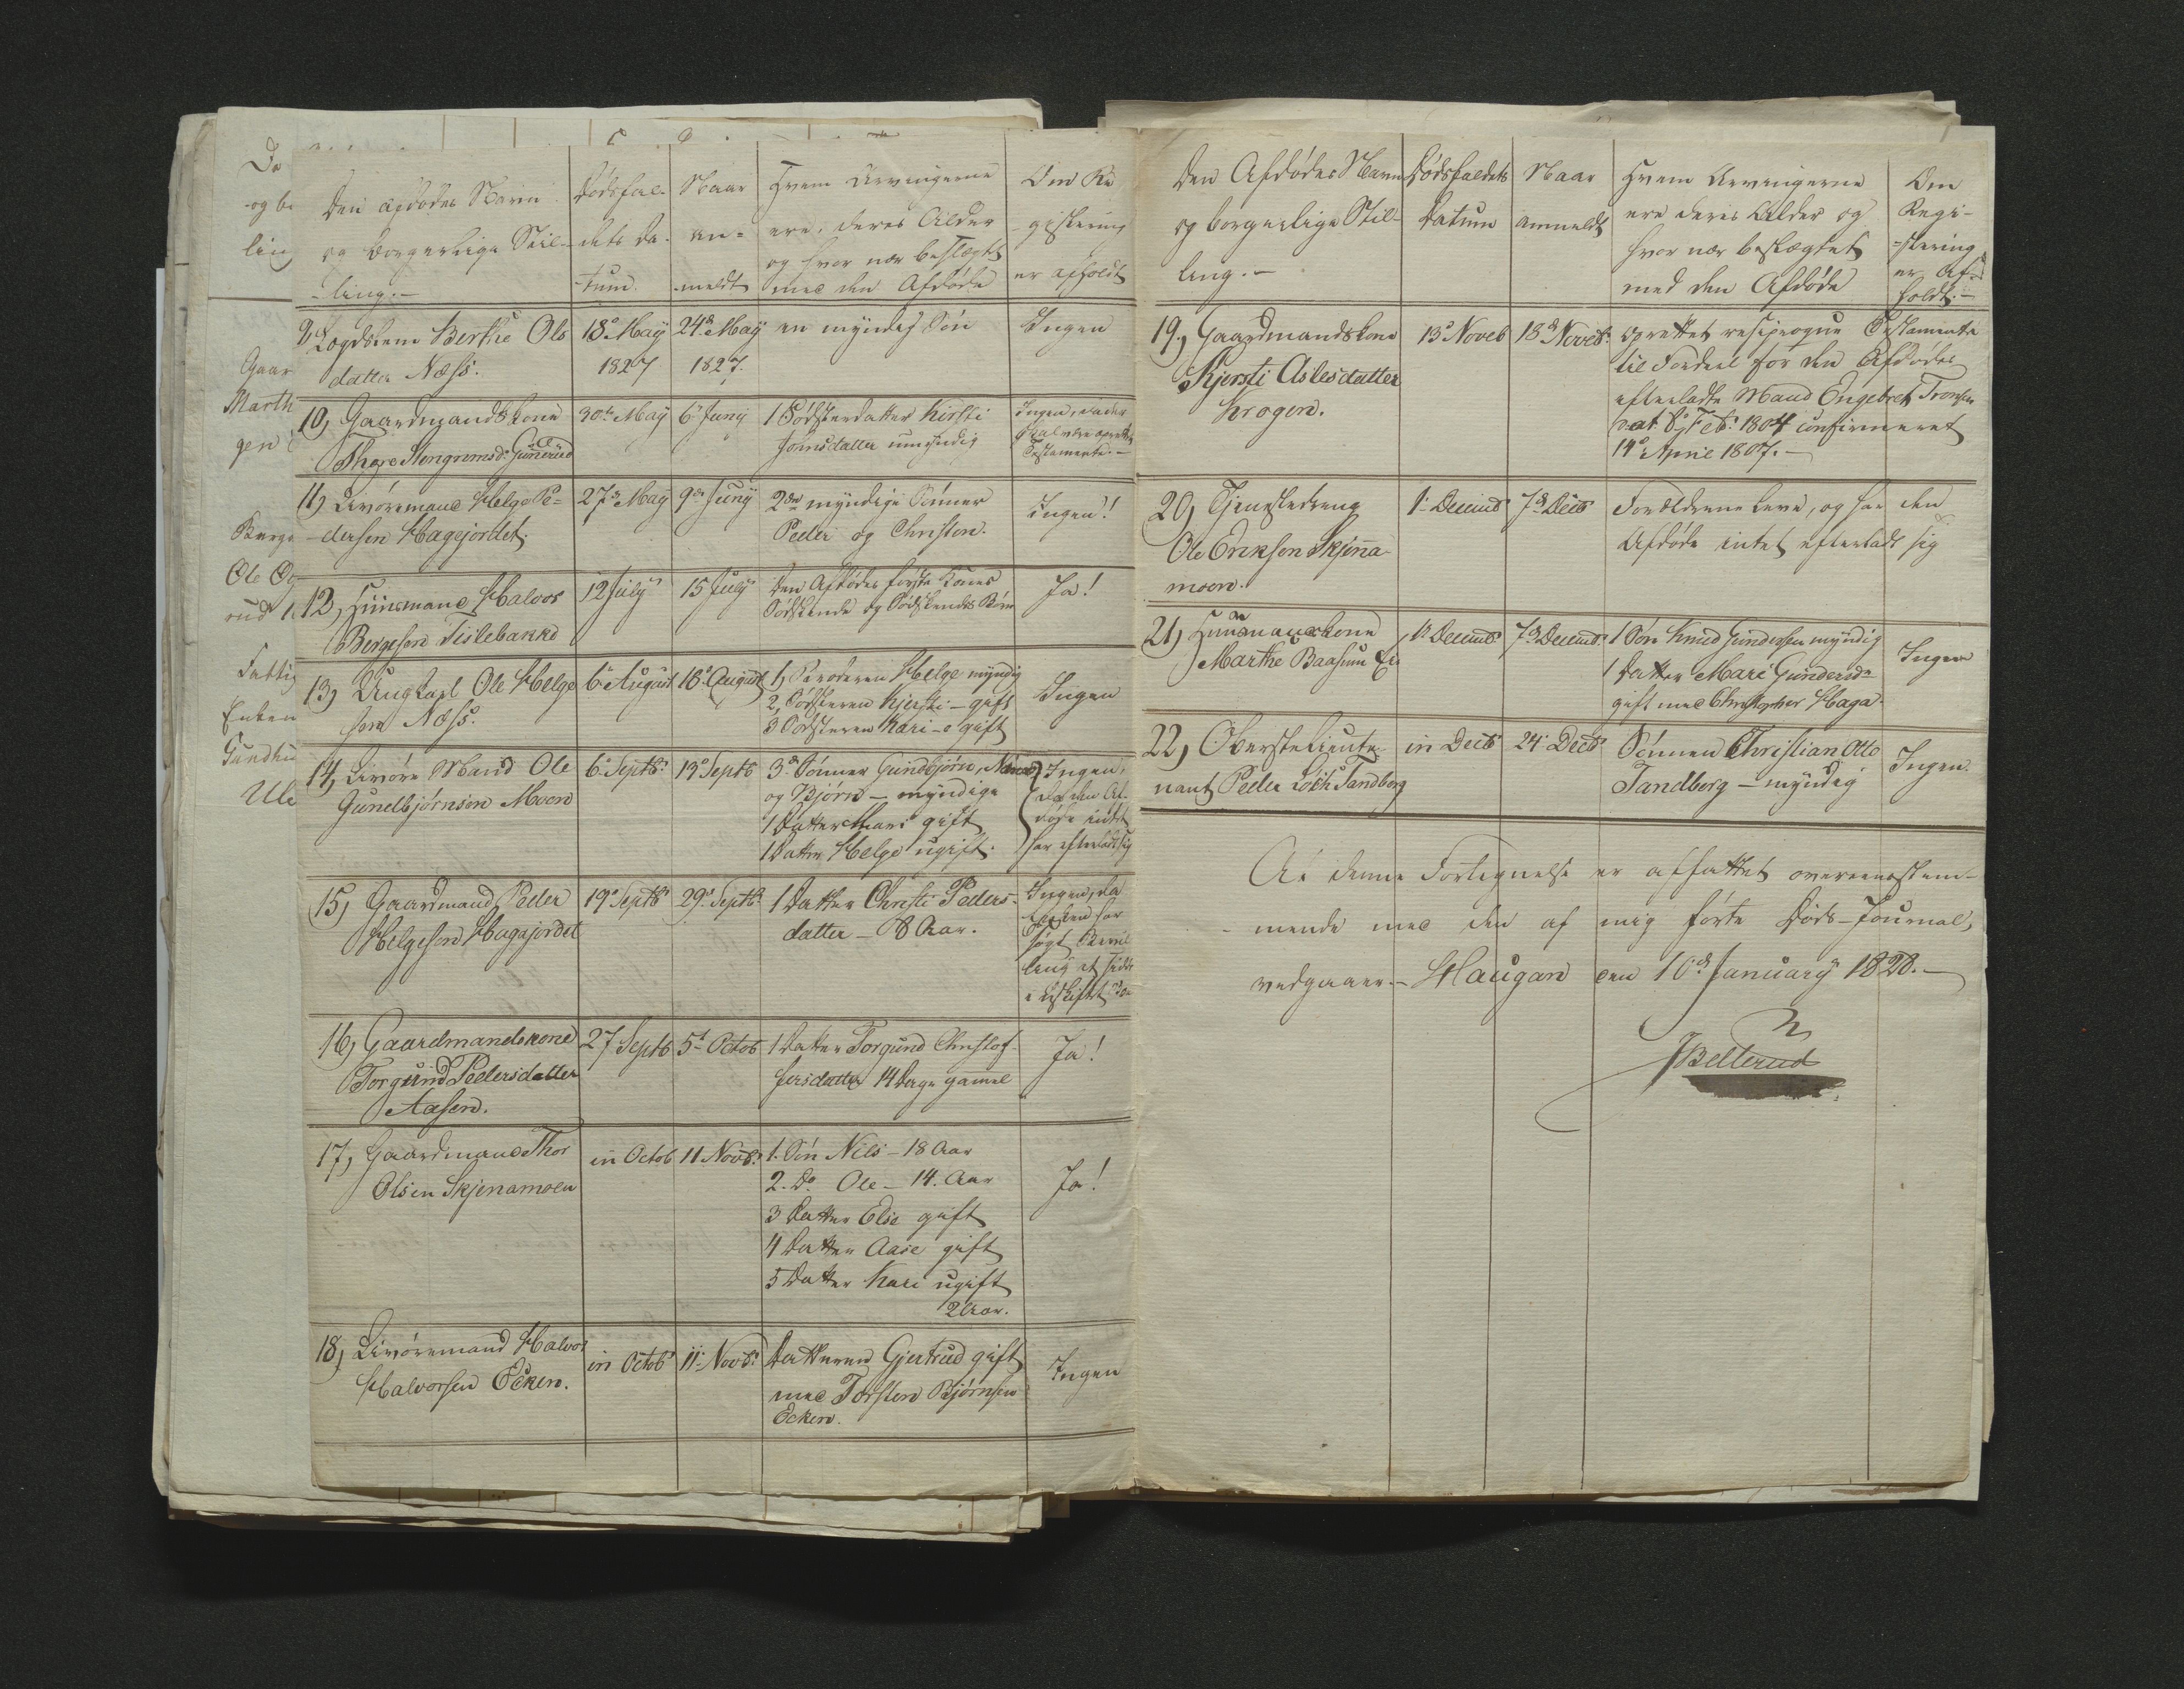 Den Afdødes Navn
og borgerlige Stil-
ling.-
Dødsfal-
dets Da-
tum.
Naar
an-
meldt
Hvem Arvingerne
ere, deres Alder
og hvor nær beslægtet
med den Afdøde
Om Re
gistering
er afholdt
9, Logdskone Berthe Ols
datter Næss.
18de May
1827
24de May
1827.
en myndig Søn
Ingen
10, Gaardmandskone
Thore Stengrimsd:
30te May
6te Juny
1 Södsterdatter Kirsti
Johnsdatter umyndig
Ingen, da der
skal være oprettet
Testamente.-
11, Livøremand Helge Pe-
dersen Hagejordet.
27de May
9de Juny
2de myndige Sønner
Peder og Christen.
Ingen!
12, Huusmand Halvor
Bergesen Tislebakke
12 July
15 July
Den Afdødes første Kones
Södskende og Södskendes Børn
Ja!
13, Ungkarl Ole Helge
sen Næss.
6te August
18de August
1, Broderen Helge myndig
2, Södsteren Kjersti - gift
3 Södsteren Kari - gift
Ingen
14, Livøre Mand Ole
Gundbjørnsen Moen
6te Septb:
19de Septb
3de Sønner Gundbjørn,
og Bjørn - myndige
1 Datter Mari gift
1 Datter Helge ugift.
Ingen,
da den Af-
døde intet
har efterladt sig
15, Gaardmand Peder
Helgesen Hagajordet
19de Septb
29de Septb:
1 Datter Christi Peders-
datter - 8 Aar.
Ingen, da
Enken har
søgt Bevil
ling at sidde
i uskiftet Bo
16, Gaardmandskone
Torgund Pedersdatter
Aasen.
27 Septb
5te Octob
1 Datter Torgund Christof-
fersdatter 14 Dage gammel
Ja!
17, Gaardmand Thor
Olsen Skjenamoen
in Octob
11 Novb:
1. Søn Nils - 18 Aar
2. Do Ole - 14. Aar
3 Datter Else gift
4 Datter Aase gift
5 Datter Kari ugift
2 Aar.
Ja!
18, Livøremand Halvor
Halvorsen Ecken.
in Octob
11 Novb:
Datteren Gjertrud gift
med Torsten Bjørnsen
Ecken.
Ingen
Den Afdødes Navn
og borgerlige Stil-
ling.-
Dødsfaldets
Datum
Naar
anmeldt
Hvem Arvingerne
ere deres Alder og
hvor nær beslægtet
med den Afdøde
Om
Regi-
stering
er af-
holdt.-
19, Gaardmandskone
Kjersti Aslesdatter
Krogen.
13de Noveb
18de Noveb:
oprettet resiproque Testamente
til Fordeel for den Afdødes
efterladte Mand Engebret Tronsen
dat: 8de Feb: 1804 confirmeret
14de April 1807.-
20, Tjenstedreng
Ole Eriksen Skjena-
moen.
1te Decemb
7de Decb
Forældrene leve, og har den
Afdøde intet efterladt sig
21, Huusmandskone
Marthe Baasum Eie
1te Decemb
7de Decemb:
1 Søn Knud Gundersen myndig
1 Datter Mari Gundersd:
gift med Christopher Haga.
Ingen
22, Oberstelieute-
nant Peder Löch Tandberg
in Decb
24de Decb
Sønnen Christian Otto
Tandberg - myndig
Ingen.
At denne Fortegnelse er affattet overeenstem-
mende med den af mig førte Døds-Journal,
vedgaaer.- Haugan den 10de January 1828.-
JBelterud